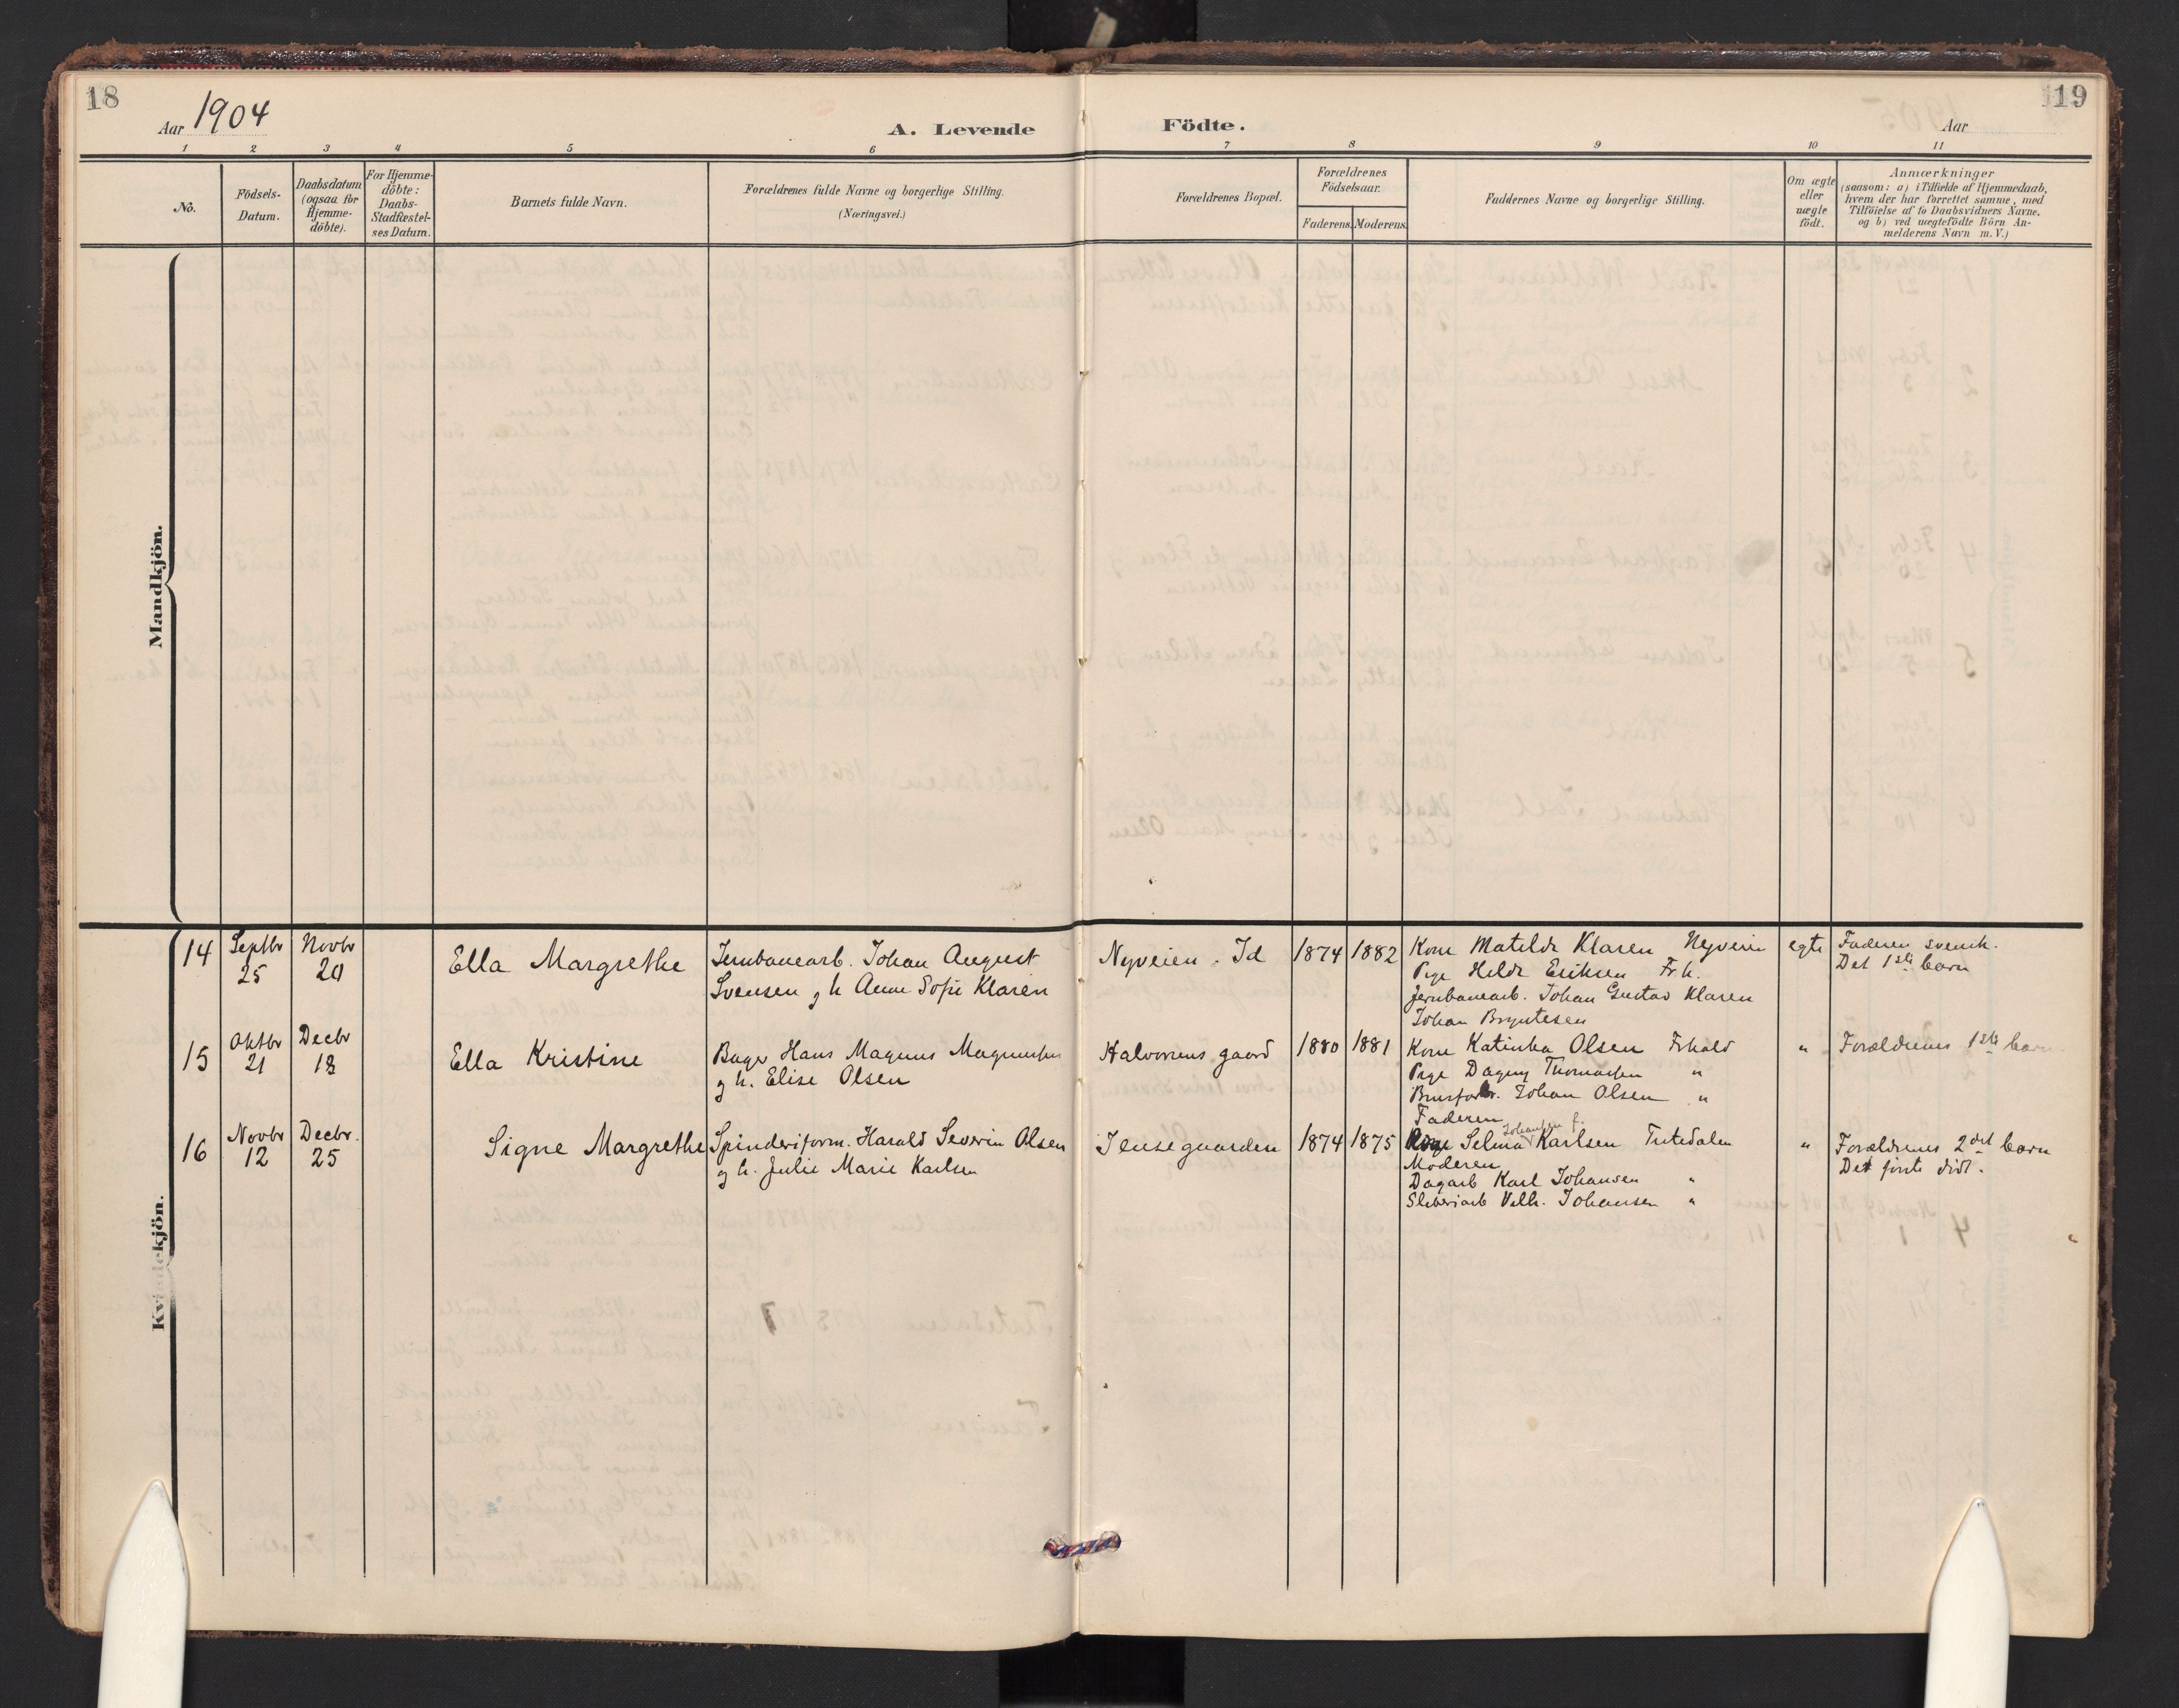 18
Aar 1904
A. Levende
Födte.
Aar
119
1 2 3 4 5 6 7 8 9 10 11
No.
Födsels-
Datum.
Daabsdatum
(ogsaa for
Hjemme-
döbte).
For Hjemme-
döbte:
Daabs-
Stadfæstel-
ses Datum.
Barnets fulde Navn.
Forældrenes fulde Navne og borgerlige Stilling.
(Næringsvei.)
Forældrenes Bopæl.
Forældrenes
Födselsaar.
Faderens. Moderens.
Faddernes Navne og borgerlige Stilling.
Om ægte
eller
uægte
födt.
Anmærkninger
(saasom: a) i Tilfælde af Hjemmedaab,
hvem der har forrettet samme, med
Tilföielse af to Daabsvidners Navne,
og b) ved uægtefödte Börn An-
melderens Navn m. V.)
Mandkjön.
Kvindekjön.
14
Septbr
25
Novbr
20
Ella Margrethe
Jernbanearb. Johan August
Svensen g h Anne Sofie Klaren
Nyveien. Id
1874 1882
Kone Matilde Klaren Nyveien
Pige Hilde Eriksen Fr.h.
Jernbanearb. Johan Gustav Klaren
Johan Bryntesen
egte
Faderen svensk.
Det 1ste barn
15
Oktbr
21
Decbr
18
Ella Kristine
Bager Hans Magnus Magnussen
g h. Elise Olsen
Halvorsens gaard
1880 1881
Kone Katinka Olsen Frhald
Pige Dagny Thomasen "
Johan Olsen "
Faderen
"
Forældrenes 1ste barn
16
Novbr
12
Decbr.
25
Signe Margrethe
Spinderiform. Harald Severin Olsen
g h. Julie Marie Karlsen
Jensegaarden
1874 1875
Johansen f.
Selma Karlsen Tistedalen
Moderen
Dagarb Karl Johansen "
Sliberiarb Vilh. Johansen "
"
Forældrenes 2det barn
Det første død.